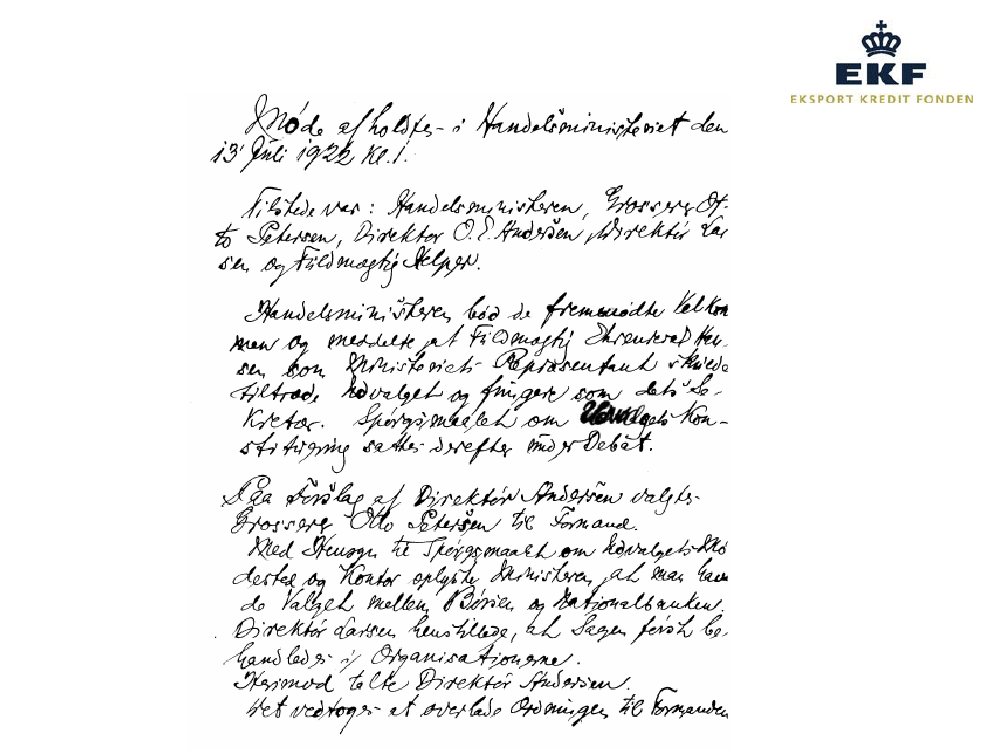 EKF
EKSPORT KREDIT FONDEN
Møde afholdtes i Handelsministeriet den
13' Juli 1922 Kl. 1.
Tilstede var: Handelsministeren, Grosserer Ot-
to Petersen, Direktør O. E. Andersen, Direktør Lar
sen og Fuldmægtig Helper.
Handelsministeren bød de fremmødte Velkom
men og meddelte at Fuldmægtig Ehrenreich Han-
sen som Ministeriets Repræsentant skulde
tiltræde Udvalget og fungere som dets Se-
kretær. Spørgsmaalet om Udvalgets Kon-
stituering sattes derefter under Debat.
Paa Forslag af Direktør Andersen valgtes
Grosserer Otto Petersen til Formand.
Med Hensyn til Spørgsmaalet om Udvalgets Mø
dested og Kontor oplyste Ministeren, at man hav
de Valget mellem Børsen og Nationalbanken.
Direktør Larsen henstillede, at Sagen først be-
handledes i Organisationerne.
Herimod talte Direktør Andersen.
Det vedtoges at overlade Ordningen til Formanden